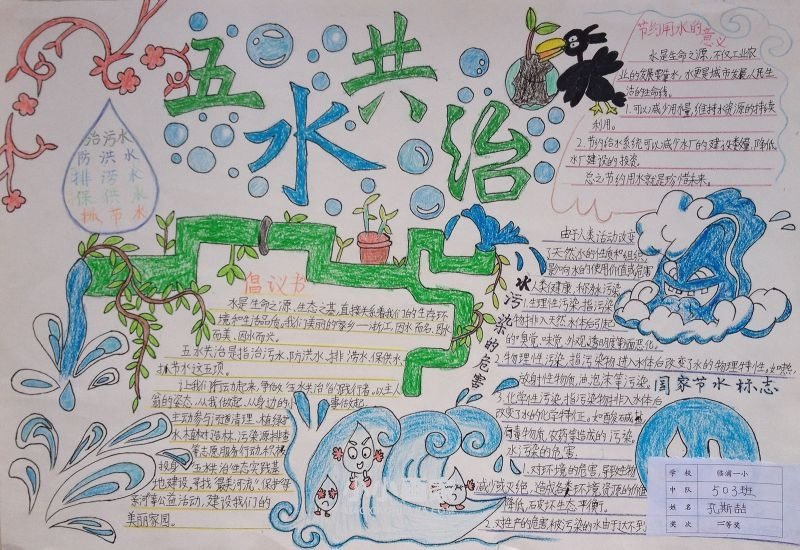 五水共治
治污水
防洪水
排涝水
保供水
抓节水
节约用水的意义
水是生命之源,不仅工业农
业的发展要靠水,水更是城市发展、人民生
活的生命线。
1.可以减少用水量,维持水资源的持续
利用。
2.节约给水系统可以减少水厂的建设数量,降低
水厂建设的投资。
总之节约用水就是珍惜未来。
倡议书
水是生命之源、生态之基,直接关系着我们的生存环
境和生活品质。我们美丽的家乡——浙江,因水而名、因水
而美、因水而兴。
五水共治是指治污水、防洪水、排涝水、保供水、
抓节水这五项。
让我们行动起来,争做"五水共治"的践行者。以主人
翁的姿态,从我做起,从身边的
事做起。
主动参与河道清理、植绿护
水、植树造林、污染源排查
等志愿服务行动,积极
投身"五水共治"生态实践基
地建设,寻找"最美河流"保护母
亲河等公益活动,建设我们的
美丽家园。
水污染的危害
由于人类活动改变
了天然水的性质和组织
影响水的使用价值或危害
人类健康,称为水污染
1.生理性污染:指污染
物排入天然水体后引起
的臭觉、味觉、外观、透明度等方面恶化。
2.物理性污染:指污染物进入水体后改变了水的物理特性,如热、
放射性物质、油、泡沫等污染。
3.化学性污染:指污染物排入水体后
改变了水的化学特征。如酸碱盐、
有毒物质、农药等造成的污染。
水污染的危害。
1.对环境的危害,导致生物的
减少或灭绝,造成各类环境资源的价值
降低,破坏生态平衡。
2.对生产的危害,被污染的水由于达不到
国家节水标志
学校 临浦一小
中队 503班
姓名 孔斯喆
奖次 二等奖